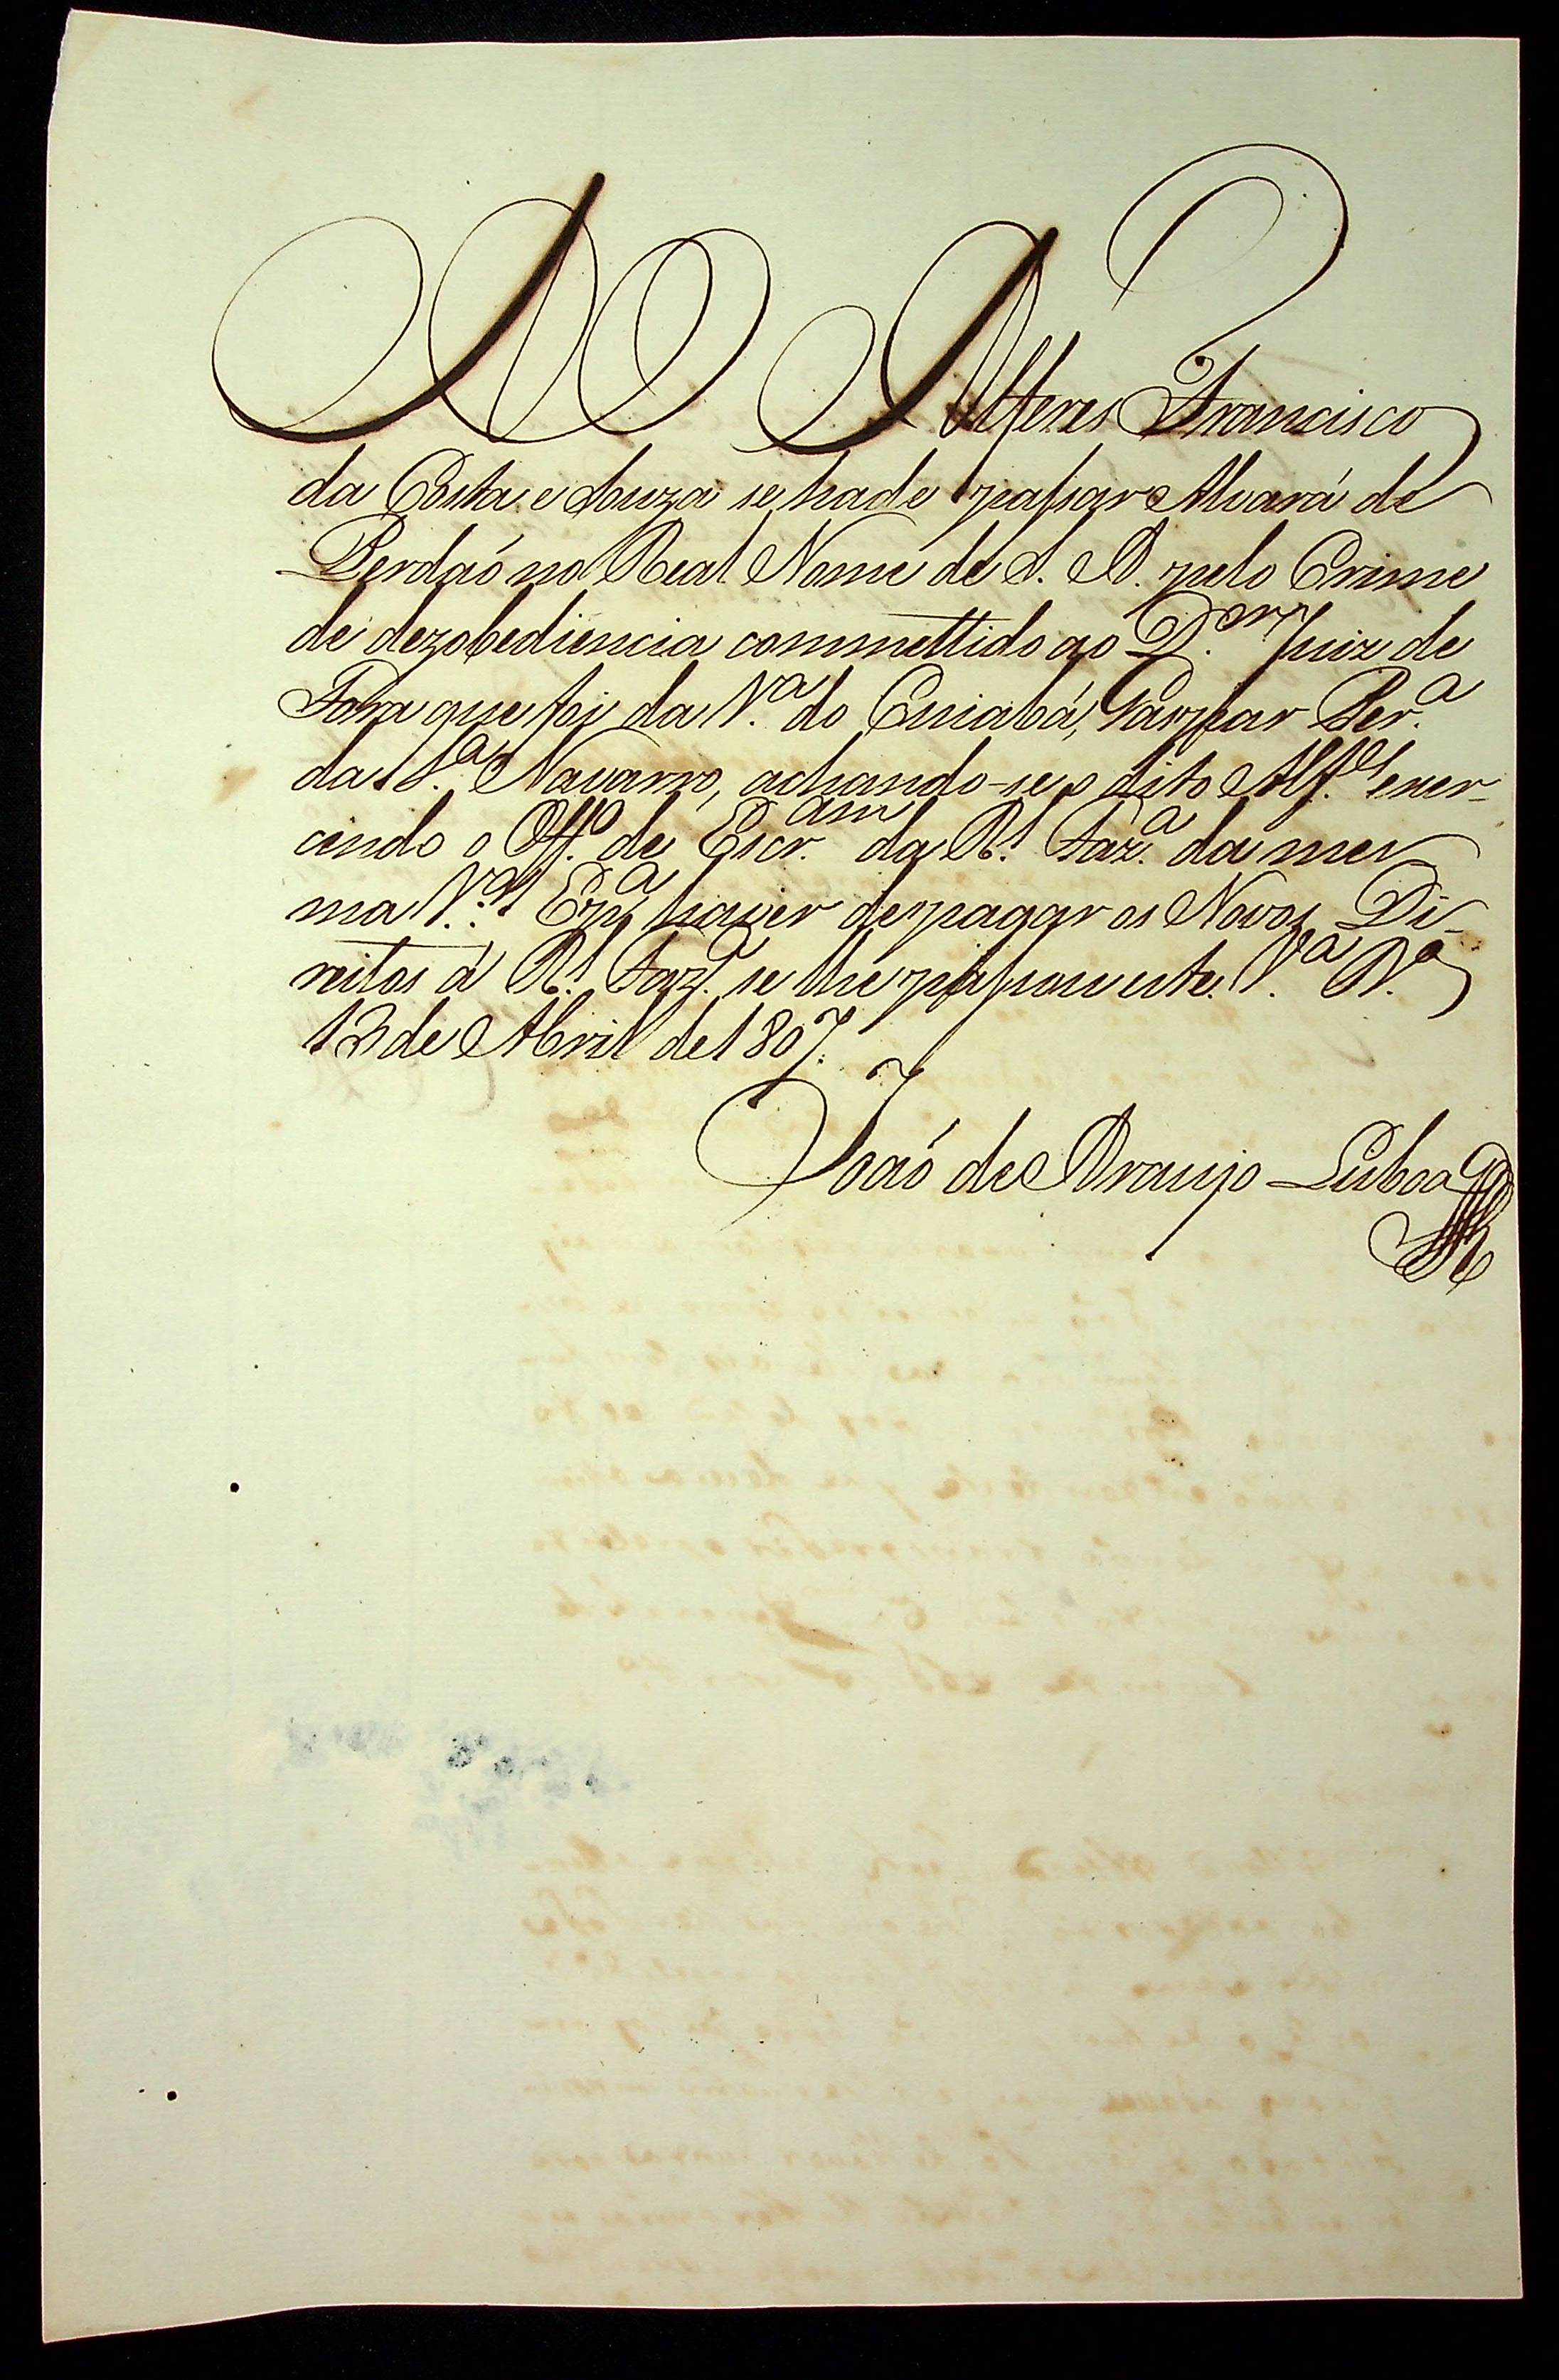 Ao Alferes Francisco
da Costa e Souza se hade passar Alvará de
Perdaõ no Real Nome de S. A. pelo Crime
de dezobediencia commettido ao D.or Juiz de
Fora que foi da V.a do Cuiabá, Gaspar Per.a
da S.a Navarro, achando-se o dito Alf.es exer-
cendo o Off.o de Escr.am da R.l Faz.a da mes-
ma V.a E p.a haver de pagar os Novos Di-
reitos á R.l Faz.a se lhe passou este. V.a B.a
13 de Abril de 1807.
Joaõ de Araujo Lisboa